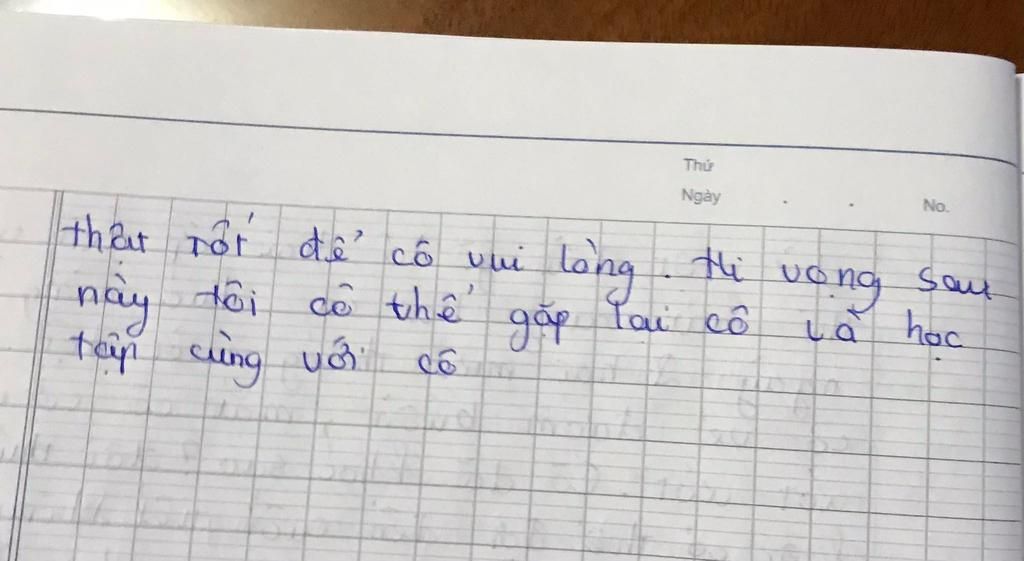 Thứ
Ngày . . No.
thật tốt để cô vui lòng. Hi vọng sau
này tôi có thể gặp lại cô và học
tập cùng với cô